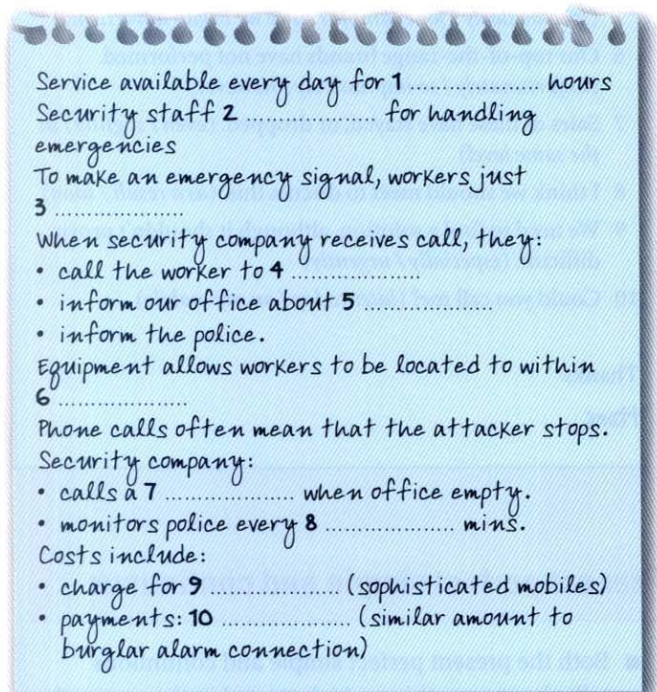 Service available every day for 1 .................... hours
Security staff 2 .................... for handling
emergencies
To make an emergency signal, workers just
3 ....................
When security company receives call, they:
• call the worker to 4 ....................
• inform our office about 5 ....................
• inform the police.
Equipment allows workers to be located to within
6 ....................
Phone calls often mean that the attacker stops.
Security company:
• calls a 7 .................... when office empty.
• monitors police every 8 .................... mins.
Costs include:
• charge for 9 .................... (sophisticated mobiles)
• payments: 10 .................... (similar amount to
burglar alarm connection)